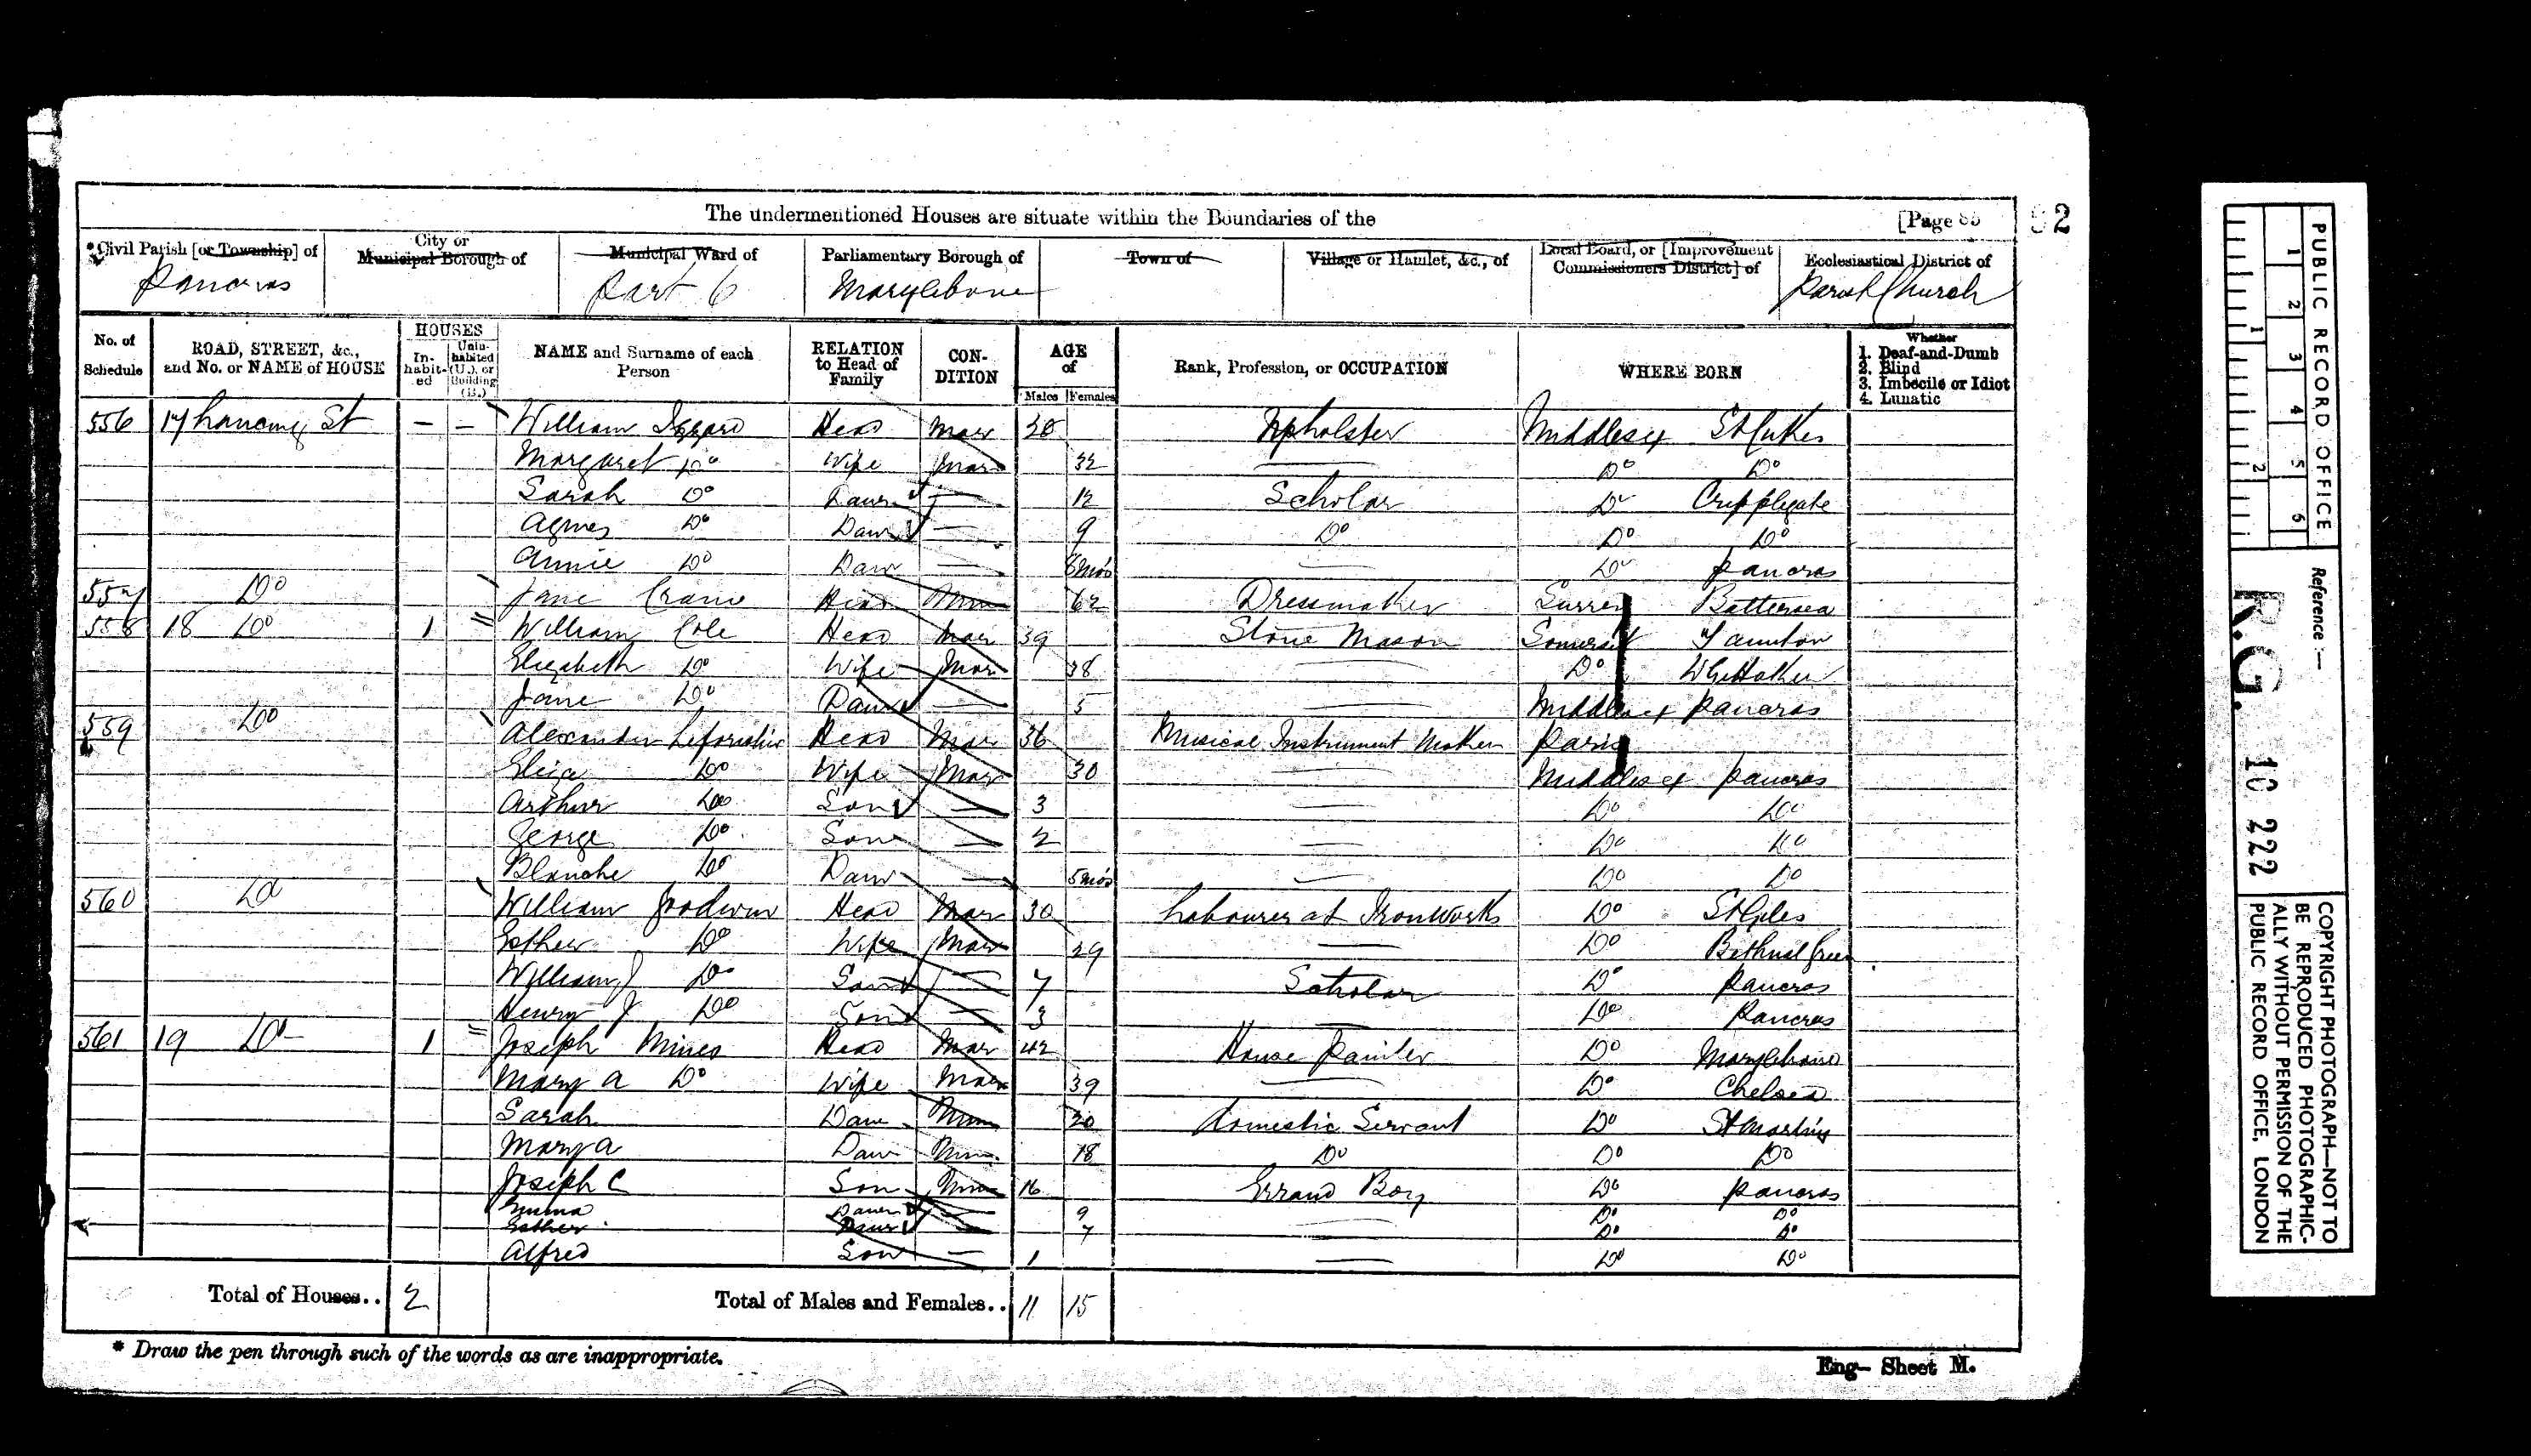 The undermentioned Houses are situate within the Boundaries of the [Page 92
*Civil Parish [or Township] of City or Municipal Borough of Municipal Ward of Parliamentary Borough of Town of Village or Hamlet, &c., of Local Board, or [Improvement Commissioners District] of Ecclesiastical District of
Pancras Part 6 Marylebone Parish Church
No. of Schedule ROAD, STREET, &c., and No. or NAME of HOUSE HOUSES In-habit-ed Unin-habited (U.), or Building (B.) NAME and Surname of each Person RELATION to Head of Family CON-DITION AGE of Males Females Rank, Profession, or OCCUPATION WHERE BORN Whether 1. Deaf-and-Dumb 2. Blind 3. Imbecile or Idiot 4. Lunatic
556 17 St — — William Head Mar Upholster Middlesex St Lukes
Margaret Do Wife Mar 32 — Do Do
Sarah Do Daur — 12 Scholar Do Cripplegate
Agnes Do Daur — 9 Do Do Do
Annie Do Daur — 8 Mos — Do Pancras
557 Do Jane Head Unm 62 Dressmaker Surrey Battersea
558 18 Do 1 William Cole Head Mar 39 Stone Mason Somerset Taunton
Elizabeth Do Wife Mar 38 — Do
Jane Do Daur — 5 — Middlesex Pancras
559 Do Alexander Head Mar 36 Musical Instrument Maker Paris
Eliza Do Wife Mar 30 — Middlesex Pancras
Arthur Do Son — 3 — Do Do
George Do Son — 2 — Do Do
Blanche Do Daur — 5 Mos — Do Do
560 Do William Goodwin Head Mar 30 Labourer at Iron Works Do St Giles
Esther Do Wife Mar 29 — Do Bethnal Green
William J Do Son — 7 Scholar Do Pancras
Henry J Do Son — 3 — Do Pancras
561 19 Do 1 Joseph Mines Head Mar 42 House Painter Do Marylebone
Mary A Do Wife Mar 39 — Do Chelsea
Sarah Daur Unm 20 Domestic Servant Do St Martins
Mary A Daur Unm 18 Do Do Do
Joseph C Son Unm 16 Errand Boy Do Pancras
Emma Daur — 9 — Do Do
Esther Daur — 7 — Do Do
Alfred Son — 1 — Do Do
Total of Houses.. 2 Total of Males and Females.. 11 15
* Draw the pen through such of the words as are inappropriate.
Eng— Sheet M.
PUBLIC RECORD OFFICE
1 2 3 4 5 6
1 2
Reference :—
R.G. 10 222
COPYRIGHT PHOTOGRAPH—NOT TO
BE REPRODUCED PHOTOGRAPHIC-
ALLY WITHOUT PERMISSION OF THE
PUBLIC RECORD OFFICE, LONDON